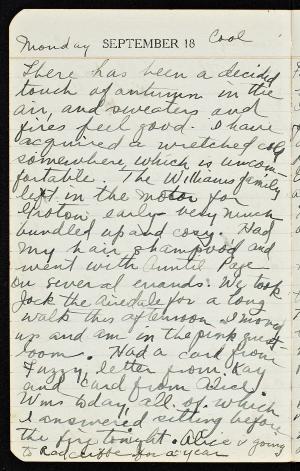 Monday SEPTEMBER 18 Cool
There has been a decided
touch of autumn in the
air, and sweaters and
fires feel good. I have
acquired a wretched cold
somewhere which is uncom-
fortable. The Williams family
left in the motor for
Groton, early - very much
bundled up and cosy. Had
my hair shampood and
went with Auntie Page
on several errands. We took
Jack the Airedale for a long
walk this afternoon. I moved
up and am in the pink guest-
room. Had a card from
Fuzzy, letter from Kay
and card from Alice
Wms today, all of which
I answered sitting before
the fire tonight. Alice is going
to Radcliffe for a year